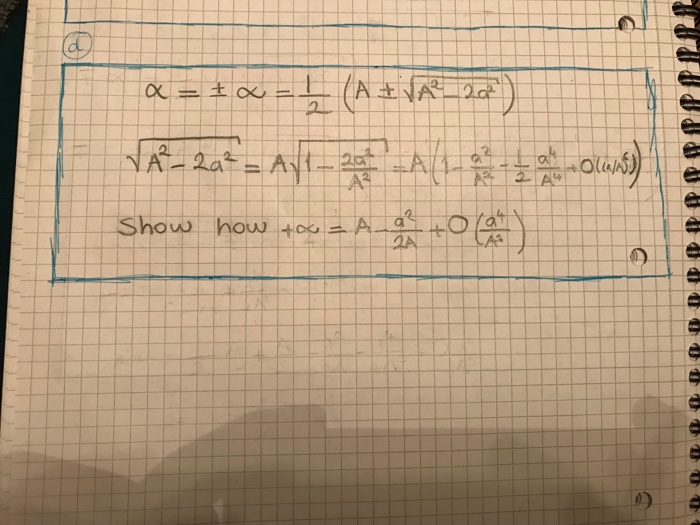 d
α = ± α = 1/2 (A ± √(A² - 2a²))
√(A² - 2a²) = A√(1 - 2a²/A²) = A(1 - a²/A² - 1/2 a⁴/A⁴ + O((a/A)⁶))
Show how +α = A - a²/2A + O(a⁴/A³)